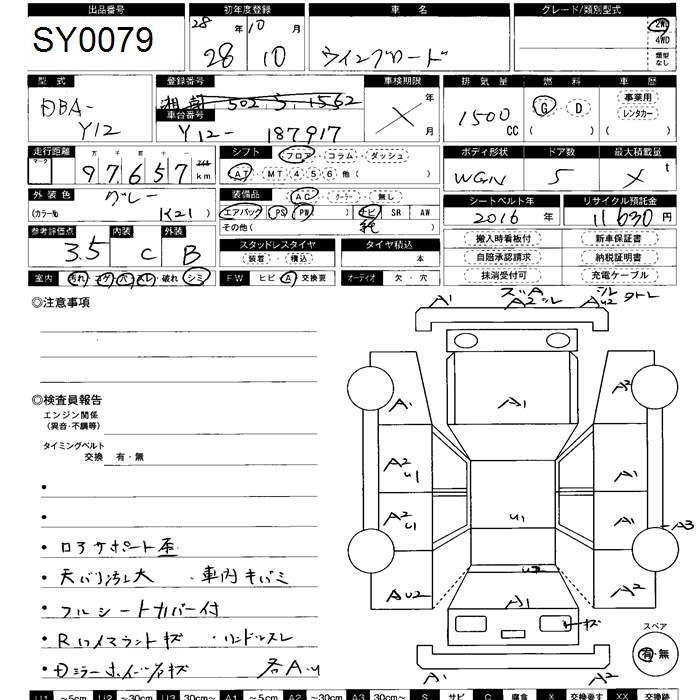 出品番号 初年度登録 車名 グレード/類別型式
SY0079 28年 10月 28 10 ウイングロード 2WD 4WD 類型なし
型式 登録番号 車検期限 排気量 燃料 車歴
DBA-Y12 湘南 502 年 月 1500cc G・D ( ) 事業用 レンタカー ( )
車台番号
Y12-187917
走行距離 シフト フロア・コラム・ダッシュ ボディ形状 ドア数 最大積載量
マーク 十万 万 千 百 十 一
97657 km AT・MT 4 5 6 他( ) WGN 5 X t
外装色 グレー 装備品 AC・クーラー・無し シートベルト年 リサイクル預託金
(カラーNo K21) エアバッグ PS PW ナビ SR AW 2016 11630円
その他( 純 )
参考評価点 内装 外装 スタッドレスタイヤ タイヤ積込 搬入時看板付 新車保証書
3.5 C B 装着・積込 本 自賠承認請求 納税証明書
室内 汚れ・コゲ・穴・スレ・破れ・シミ FW ヒビ・A・交換要 オーディオ 欠・穴 抹消受付可 充電ケーブル
◎注意事項
◎検査員報告
エンジン関係
(異音・不調等)
タイミングベルト
交換 有・無
・ロアサポート歪
・天バリ汚レ大 ・車内キバミ
・フルシートカバー付
・Rハイマウントキズ ・ハンドルスレ
・Dミラーホイール各キズ 各A・U
A1 A2
A1 A1 A2
A2 U1 A1
A2 U1 U1 A1 A3
AU2 A1 A2
キズ
スペア
有・無
A1 A2
U1 ~5cm U2 ~30cm U3 30cm~ A1 ~5cm A2 ~30cm A3 30cm~ S サビ C 腐食 X 交換要す XX 交換跡